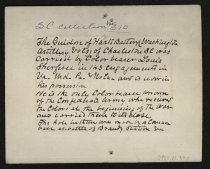 S.C. Collection
The Guidon of Hart's Battery, Washington
Artillery Vols, of Charleston S.C. was
carried by Color bearer Louis
Sherfesee in 143 engagements in
Va. Md. Pa. & N.C. and is now in
his possession
He is the only Color bearer in one
of the Confederate Army who received
the Colors at the beginning of the War
and carried them till close.
The hole in the was made by a Cannon
ball at battle of Brandy Station Va